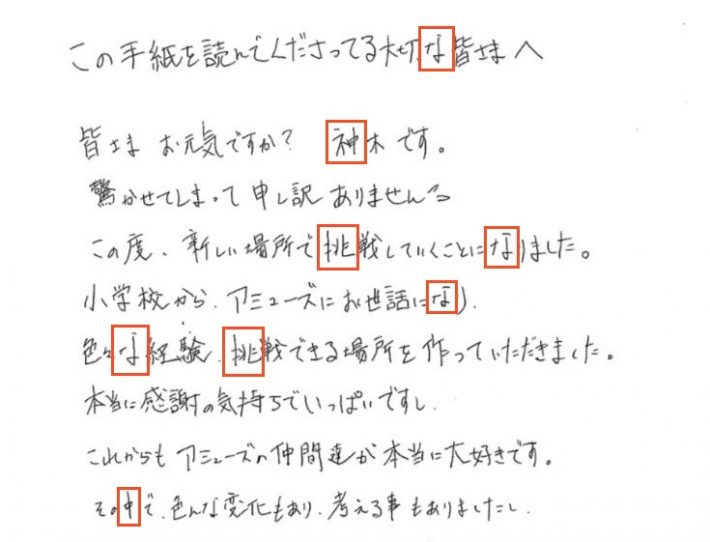 この手紙を読んでくださってる大切な皆さまへ
皆さま お元気ですか? 神木です。
驚かせてしまって申し訳ありません。
この度、新しい場所で挑戦していくことになりました。
小学校から、アミューズにお世話になり、
色々な経験、挑戦できる場所を作っていただきました。
本当に感謝の気持ちでいっぱいですし、
これからもアミューズの仲間達が本当に大好きです。
その中で、色んな変化もあり、考える事もありましたし、